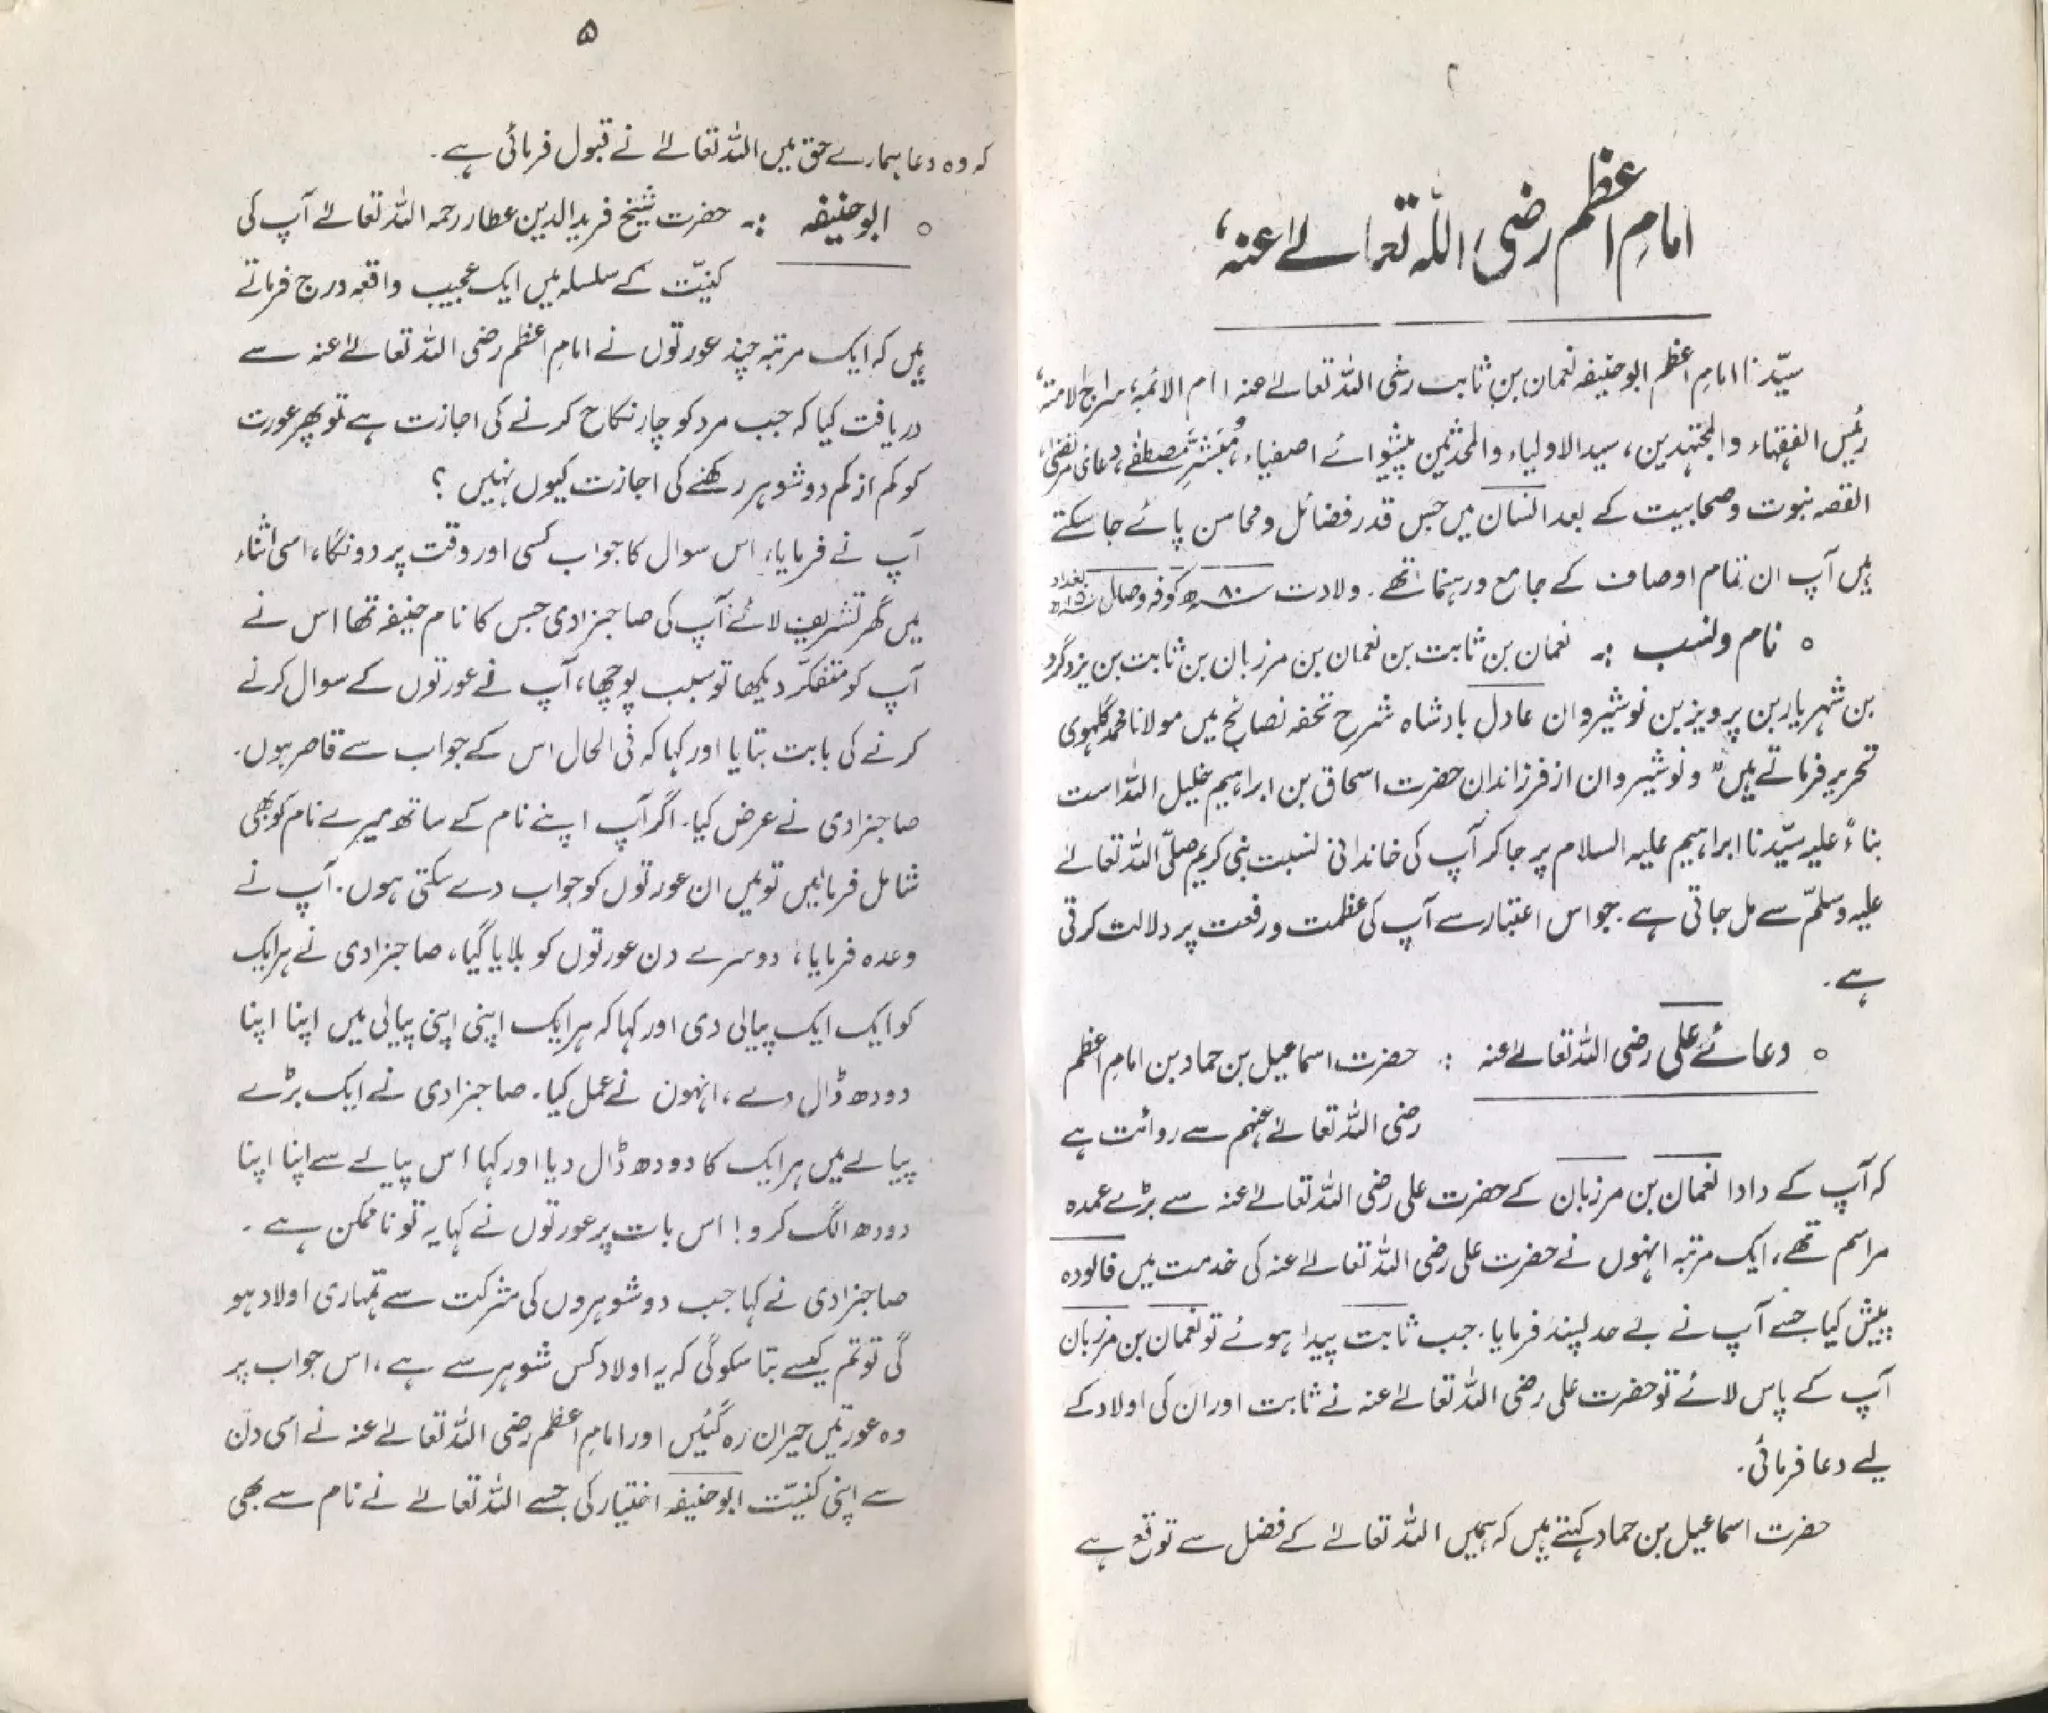 امامِ اعظم رضی اللہ تعالےٰ عنہ،
سیّدنا امامِ اعظم ابو حنیفہ نعمان بن ثابت رضی اللہ تعالےٰ عنہ امام الائمہ، سراج الامتہ،
رئیس الفقہاء والمجتہدین، سید الاولیاء والمحدثین پیشوائے اصفیاء، مُبشَّرِ مصطفٰے، دعائے مرتضیٰ،
القصہ نبوت و صحابیت کے بعد انسان میں جس قدر فضائل و محاسن پائے جا سکتے
ہیں آپ ان تمام اوصاف کے جامع و رہنما تھے۔ ولادت ۸۰ھ کوفہ وصال بغداد ۱۵۰ھ
○ نام و نسب :۔ نعمان بن ثابت بن نعمان بن مرزبان بن ثابت بن یزدگرد
بن شہریار بن پرویز بن نوشیروان عادل بادشاہ شرح تحفہ نصائح میں مولانا محمد گلہوی
تحریر فرماتے ہیں ”ونوشیروان از فرزاندان حضرت اسحاق بن ابراہیم خلیل اللہ است
بناءً علیہ سیّدنا ابراہیم علیہ السلام پر جا کر آپ کی خاندانی نسبت نبی کریم صلّی اللہ تعالےٰ
علیہ وسلّم سے مل جاتی ہے۔ جو اس اعتبار سے آپ کی عظمت و رفعت پر دلالت کرتی
ہے۔
○ دعائے علی رضی اللہ تعالےٰ عنہ :۔ حضرت اسماعیل بن حماد بن امامِ اعظم
رضی اللہ تعالےٰ عنہم سے روائت ہے
کہ آپ کے دادا نعمان بن مرزبان کے حضرت علی رضی اللہ تعالےٰ عنہ سے بڑے عمدہ
مراسم تھے، ایک مرتبہ انہوں نے حضرت علی رضی اللہ تعالےٰ عنہ کی خدمت میں فالودہ
پیش کیا جسے آپ نے بے حد پسند فرمایا۔ جب ثابت پیدا ہوئے تو نعمان بن مرزبان
آپ کے پاس لائے تو حضرت علی رضی اللہ تعالےٰ عنہ نے ثابت اور ان کی اولاد کے
لیے دعا فرمائی۔
حضرت اسماعیل بن حماد کہتے ہیں کہ ہمیں اللہ تعالےٰ کے فضل سے توقع ہے
۵
کہ وہ دعا ہمارے حق میں اللہ تعالےٰ نے قبول فرمائی ہے۔
○ ابو حنیفہ :۔ حضرت شیخ فرید الدین عطار رحمہ اللہ تعالےٰ آپ کی
کنیّت کے سلسلہ میں ایک عجیب واقعہ درج فرماتے
ہیں کہ ایک مرتبہ چند عورتوں نے امامِ اعظم رضی اللہ تعالےٰ عنہ سے
دریافت کیا کہ جب مرد کو چار نکاح کرنے کی اجازت ہے تو پھر عورت
کو کم از کم دو شوہر رکھنے کی اجازت کیوں نہیں ؟
آپ نے فرمایا، اس سوال کا جواب کسی اور وقت پر دونگا، اسی اثناء
میں گھر تشریف لائے آپ کی صاحبزادی جس کا نام حنیفہ تھا اس نے
آپ کو متفکّر دیکھا تو سبب پوچھا، آپ نے عورتوں کے سوال کرنے
کرنے کی بابت بتایا اور کہا کہ فی الحال اس کے جواب سے قاصر ہوں۔
صاحبزادی نے عرض کیا۔ اگر آپ اپنے نام کے ساتھ میرے نام کو بھی
شامل فرمائیں تو میں ان عورتوں کو جواب دے سکتی ہوں۔ آپ نے
وعدہ فرمایا، دوسرے دن عورتوں کو بلایا گیا، صاحبزادی نے ہر ایک
کو ایک ایک پیالی دی اور کہا کہ ہر ایک اپنی اپنی پیالی میں اپنا اپنا
دودھ ڈال دے، انہوں نے عمل کیا۔ صاحبزادی نے ایک بڑے
پیالے میں ہر ایک کا دودھ ڈال دیا اور کہا اس پیالے سے اپنا اپنا
دودھ الگ کرو! اس بات پر عورتوں نے کہا یہ تو ناممکن ہے۔
صاحبزادی نے کہا جب دو شوہروں کی شرکت سے تمہاری اولاد ہو
گی تو تم کیسے بتا سکو گی کہ یہ اولاد کس شوہر سے ہے، اس جواب پر
وہ عورتیں حیران رہ گئیں اور امامِ اعظم رضی اللہ تعالےٰ عنہ نے اسی دن
سے اپنی کنیّت ابو حنیفہ اختیار کی جسے اللہ تعالےٰ نے نام سے بھی